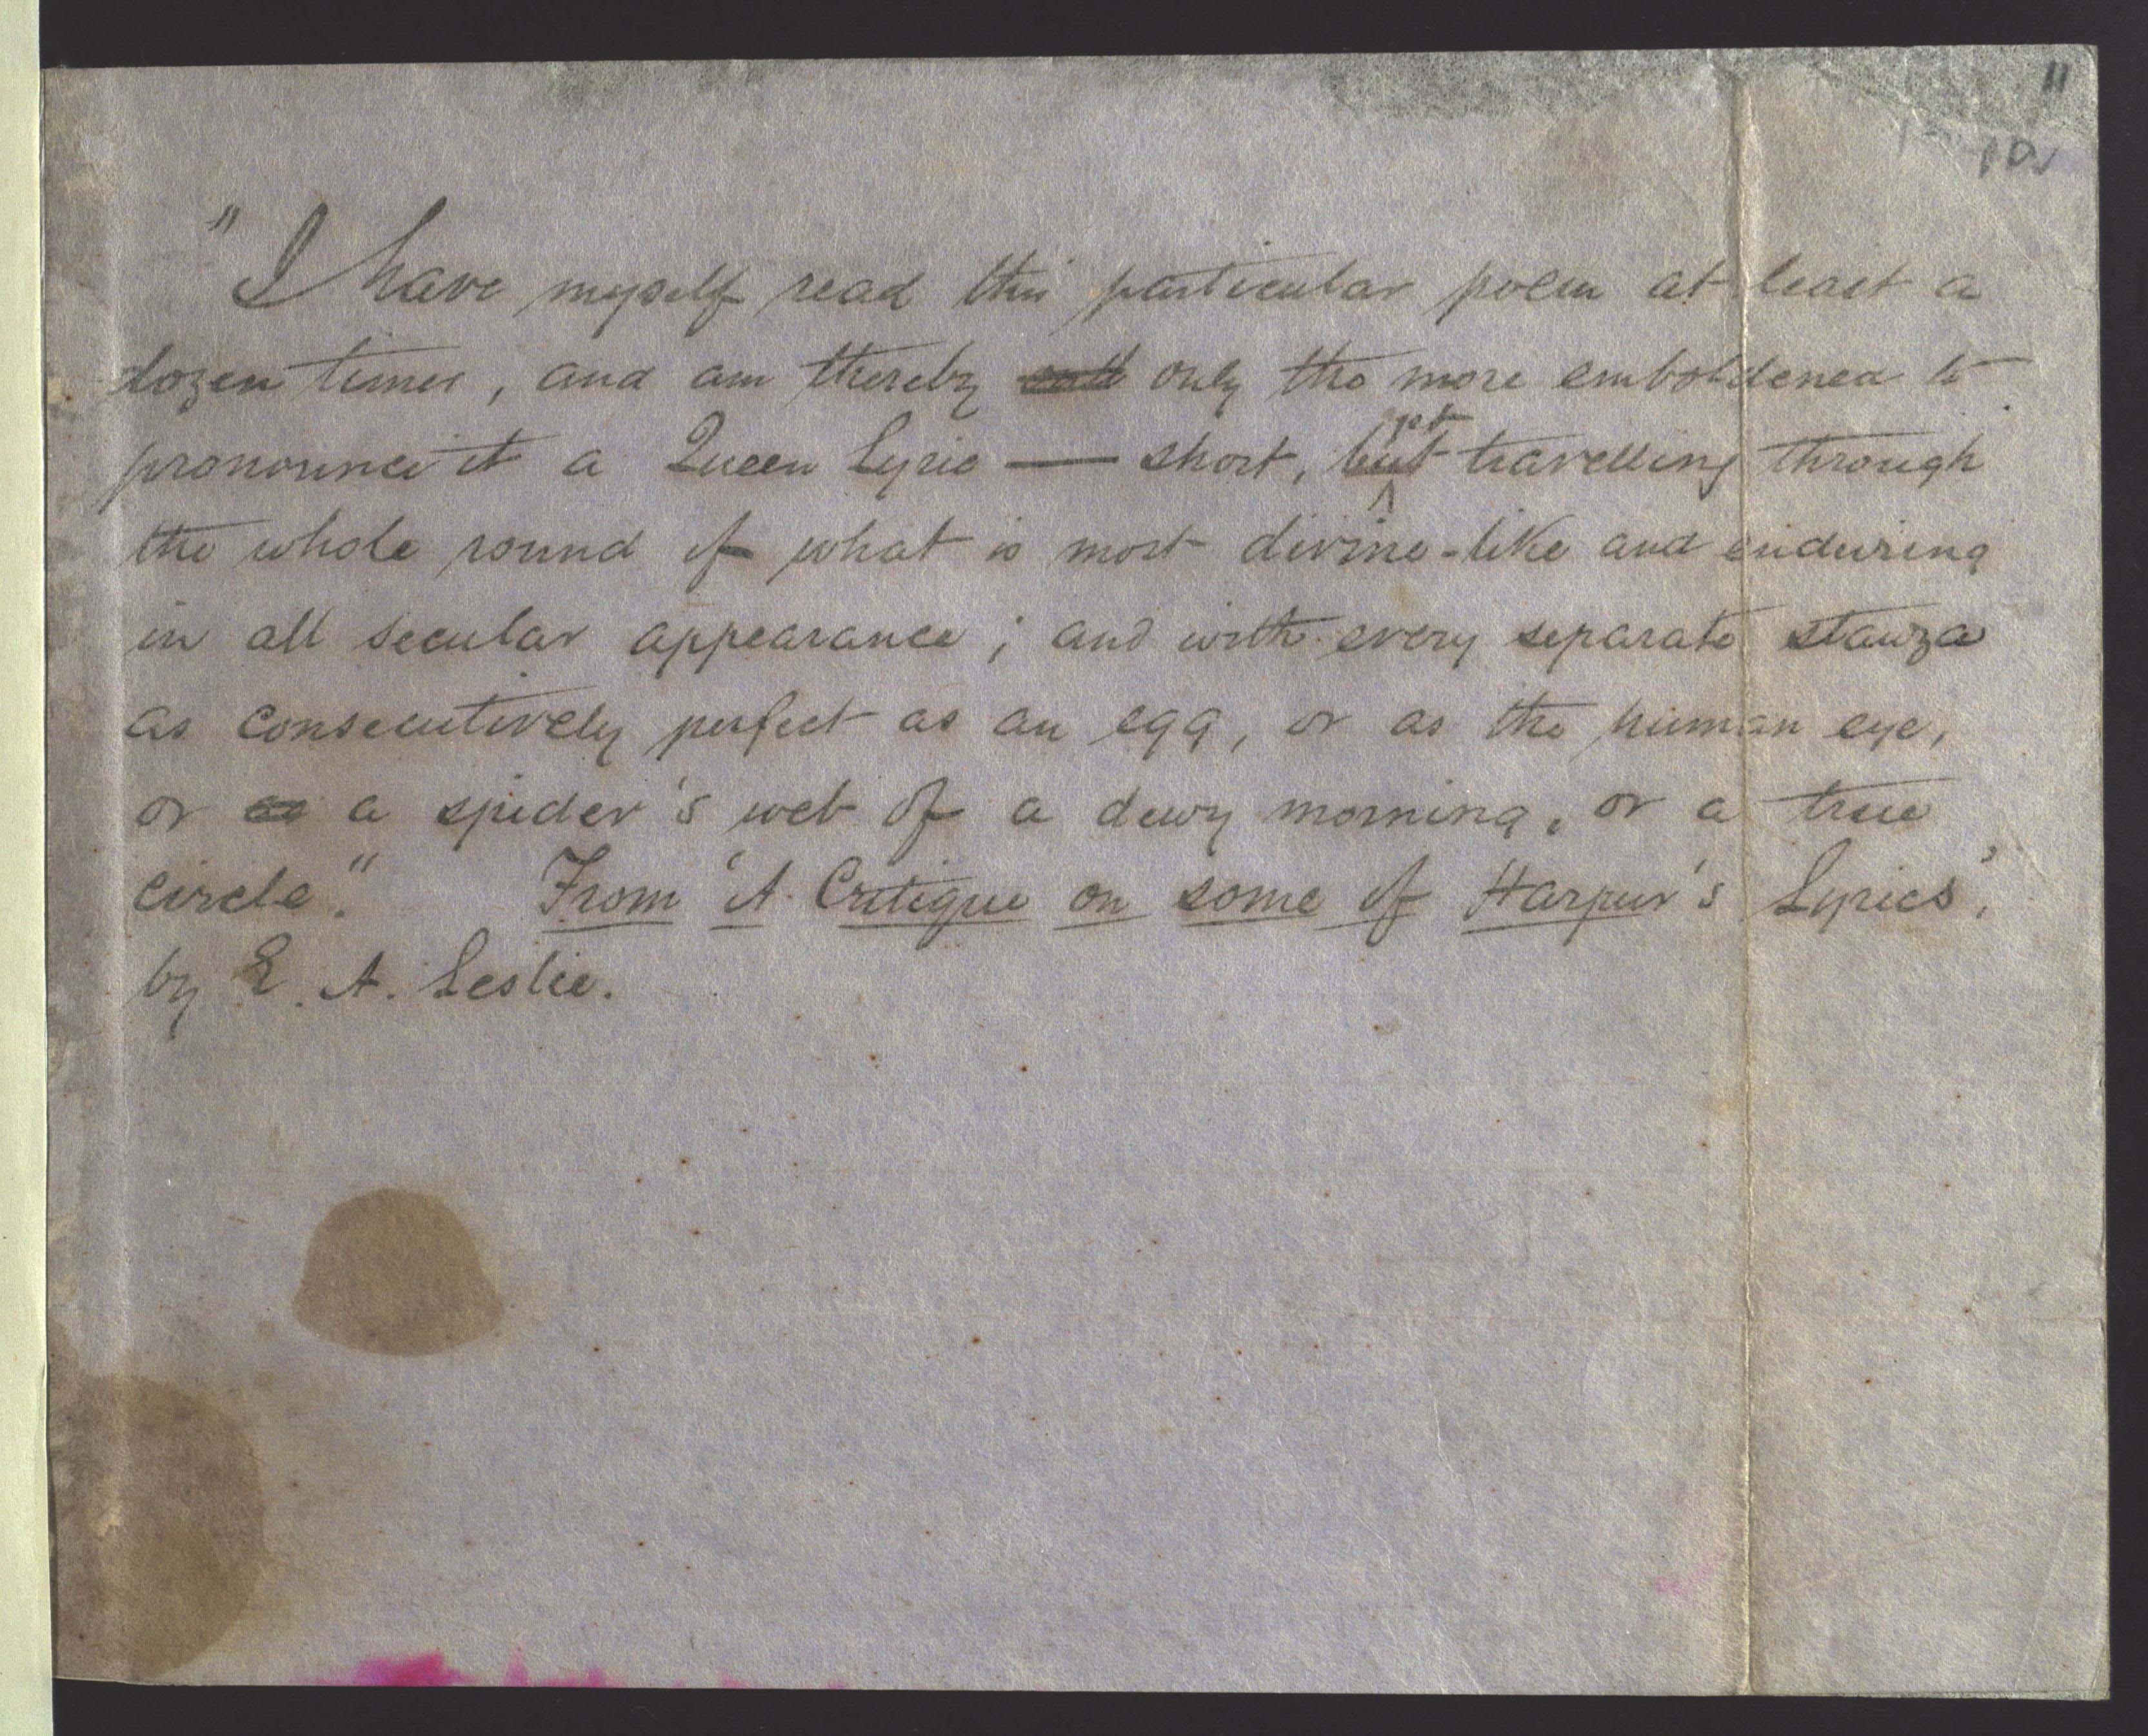 11
"I have myself read this particular poem at least a
dozen times, and am thereby only the more emboldened to
pronounce it a Queen Lyric — short, but yet travelling through
the whole round of what is most divine-like and enduring
in all secular appearance; and with every separate stanza
as consecutively perfect as an egg, or as the human eye,
or as a spider's web of a dewy morning, or a true
circle". From 'A Critique on some of Harpur's Lyrics',
by E. A. Leslie.